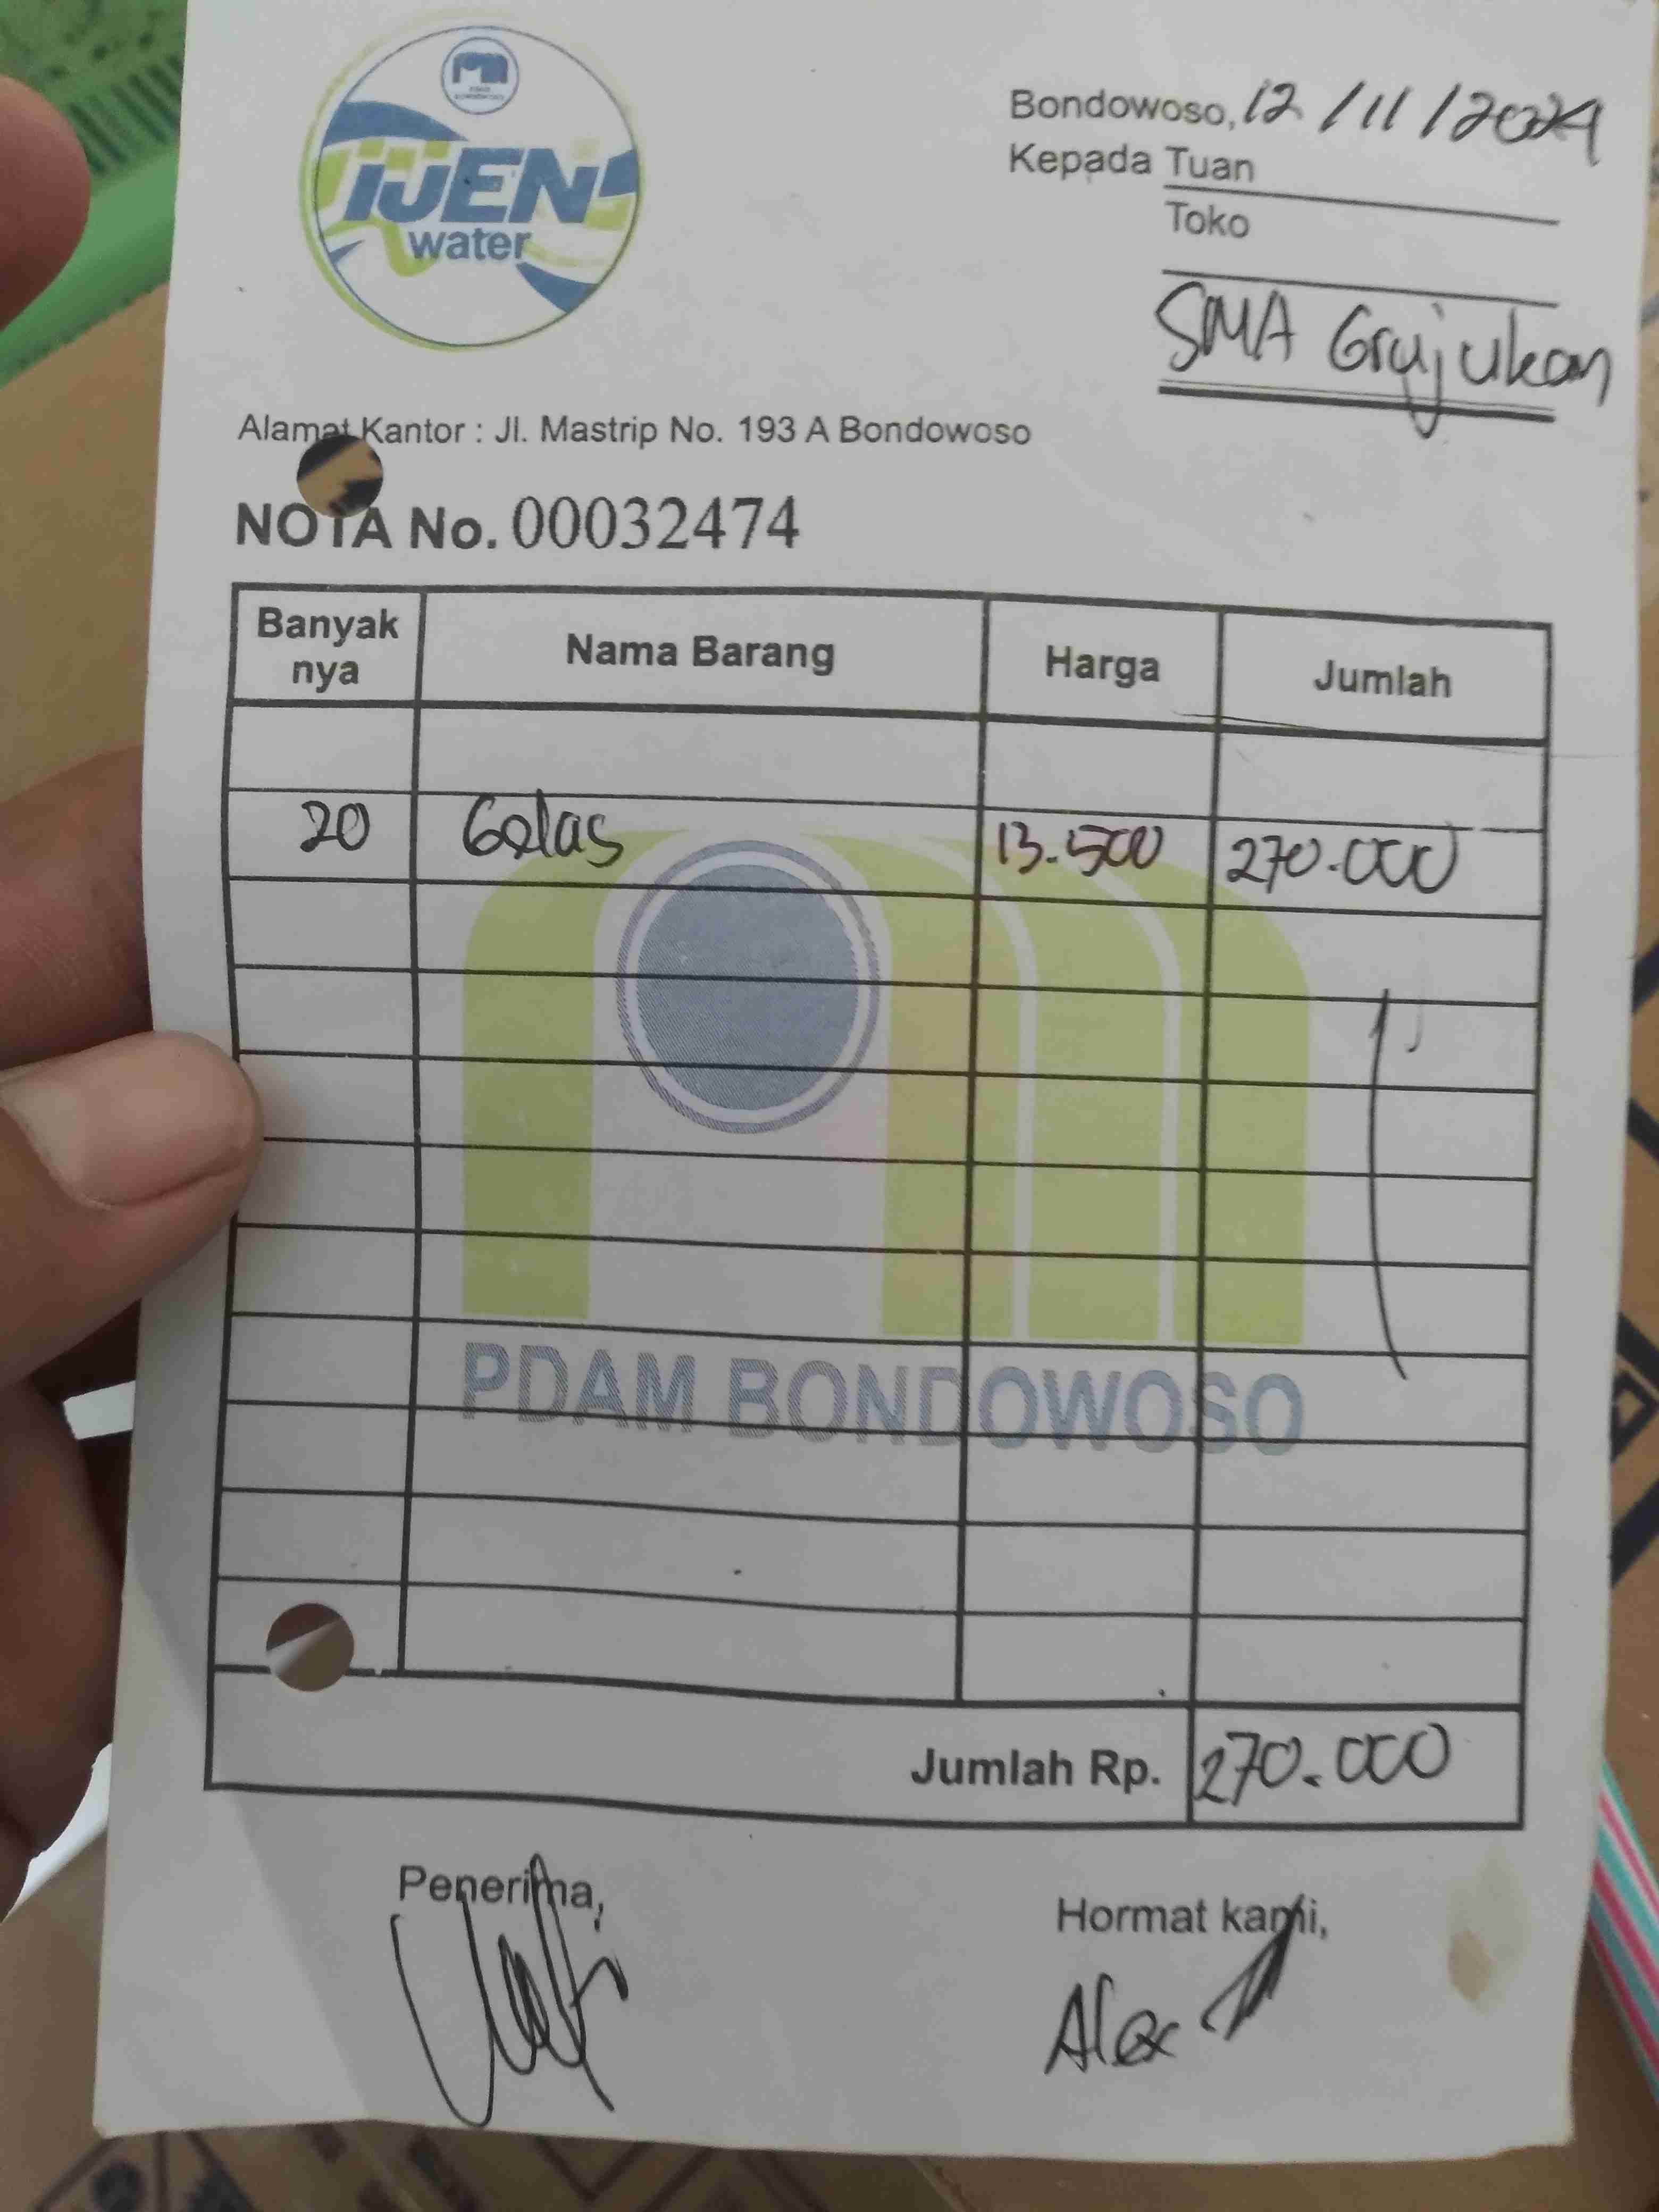 iJEN
water
Bondowoso, 12/11/2024
Kepada Tuan
Toko
SMA Grujukan
Alamat Kantor : Jl. Mastrip No. 193 A Bondowoso
NOTA No. 00032474
Banyak nya Nama Barang Harga Jumlah
20 Gelas 13.500 270.000
PDAM BONDOWOSO
Jumlah Rp. 270.000
Penerima, Hormat kami,
Alex